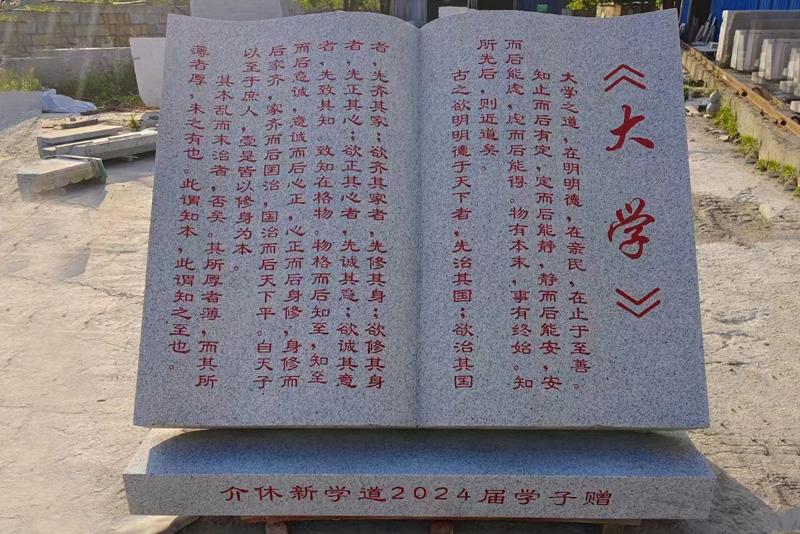 《大学》
大学之道，在明明德，在亲民，在止于至善。
知止而后有定，定而后能静，静而后能安，安
而后能虑，虑而后能得。物有本末，事有终始。知
所先后，则近道矣。
古之欲明明德于天下者，先治其国；欲治其国
者，先齐其家；欲齐其家者，先修其身；欲修其身
者，先正其心；欲正其心者，先诚其意；欲诚其意
者，先致其知。致知在格物。物格而后知至，知至
而后意诚，意诚而后心正，心正而后身修，身修而
后家齐，家齐而后国治，国治而后天下平。自天子
以至于庶人，壹是皆以修身为本。
其本乱而末治者，否矣。其所厚者薄，而其所
薄者厚，未之有也。此谓知本，此谓知之至也。
介休新学道2024届学子赠